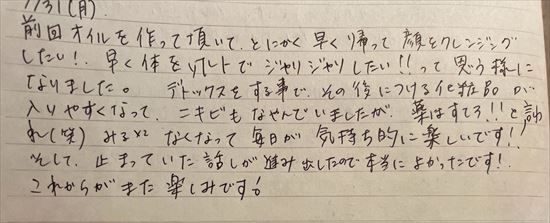 7/31(月)
前回オイルを作って頂いて、とにかく早く帰って顔をクレンジング
したい!早く体をソルトでジャリジャリしたい!!って思う様に
なりました。デトックスをする事で、その後につける化粧品が
入りやすくなって、ニキビもなやんでいましたが、薬はすてろ!!と言わ
れ(笑)みるみるなくなって毎日が気持ち的に楽しいです!!
そして、止まっていた話しが進み出したので本当によかったです!
これからがまた楽しみです!